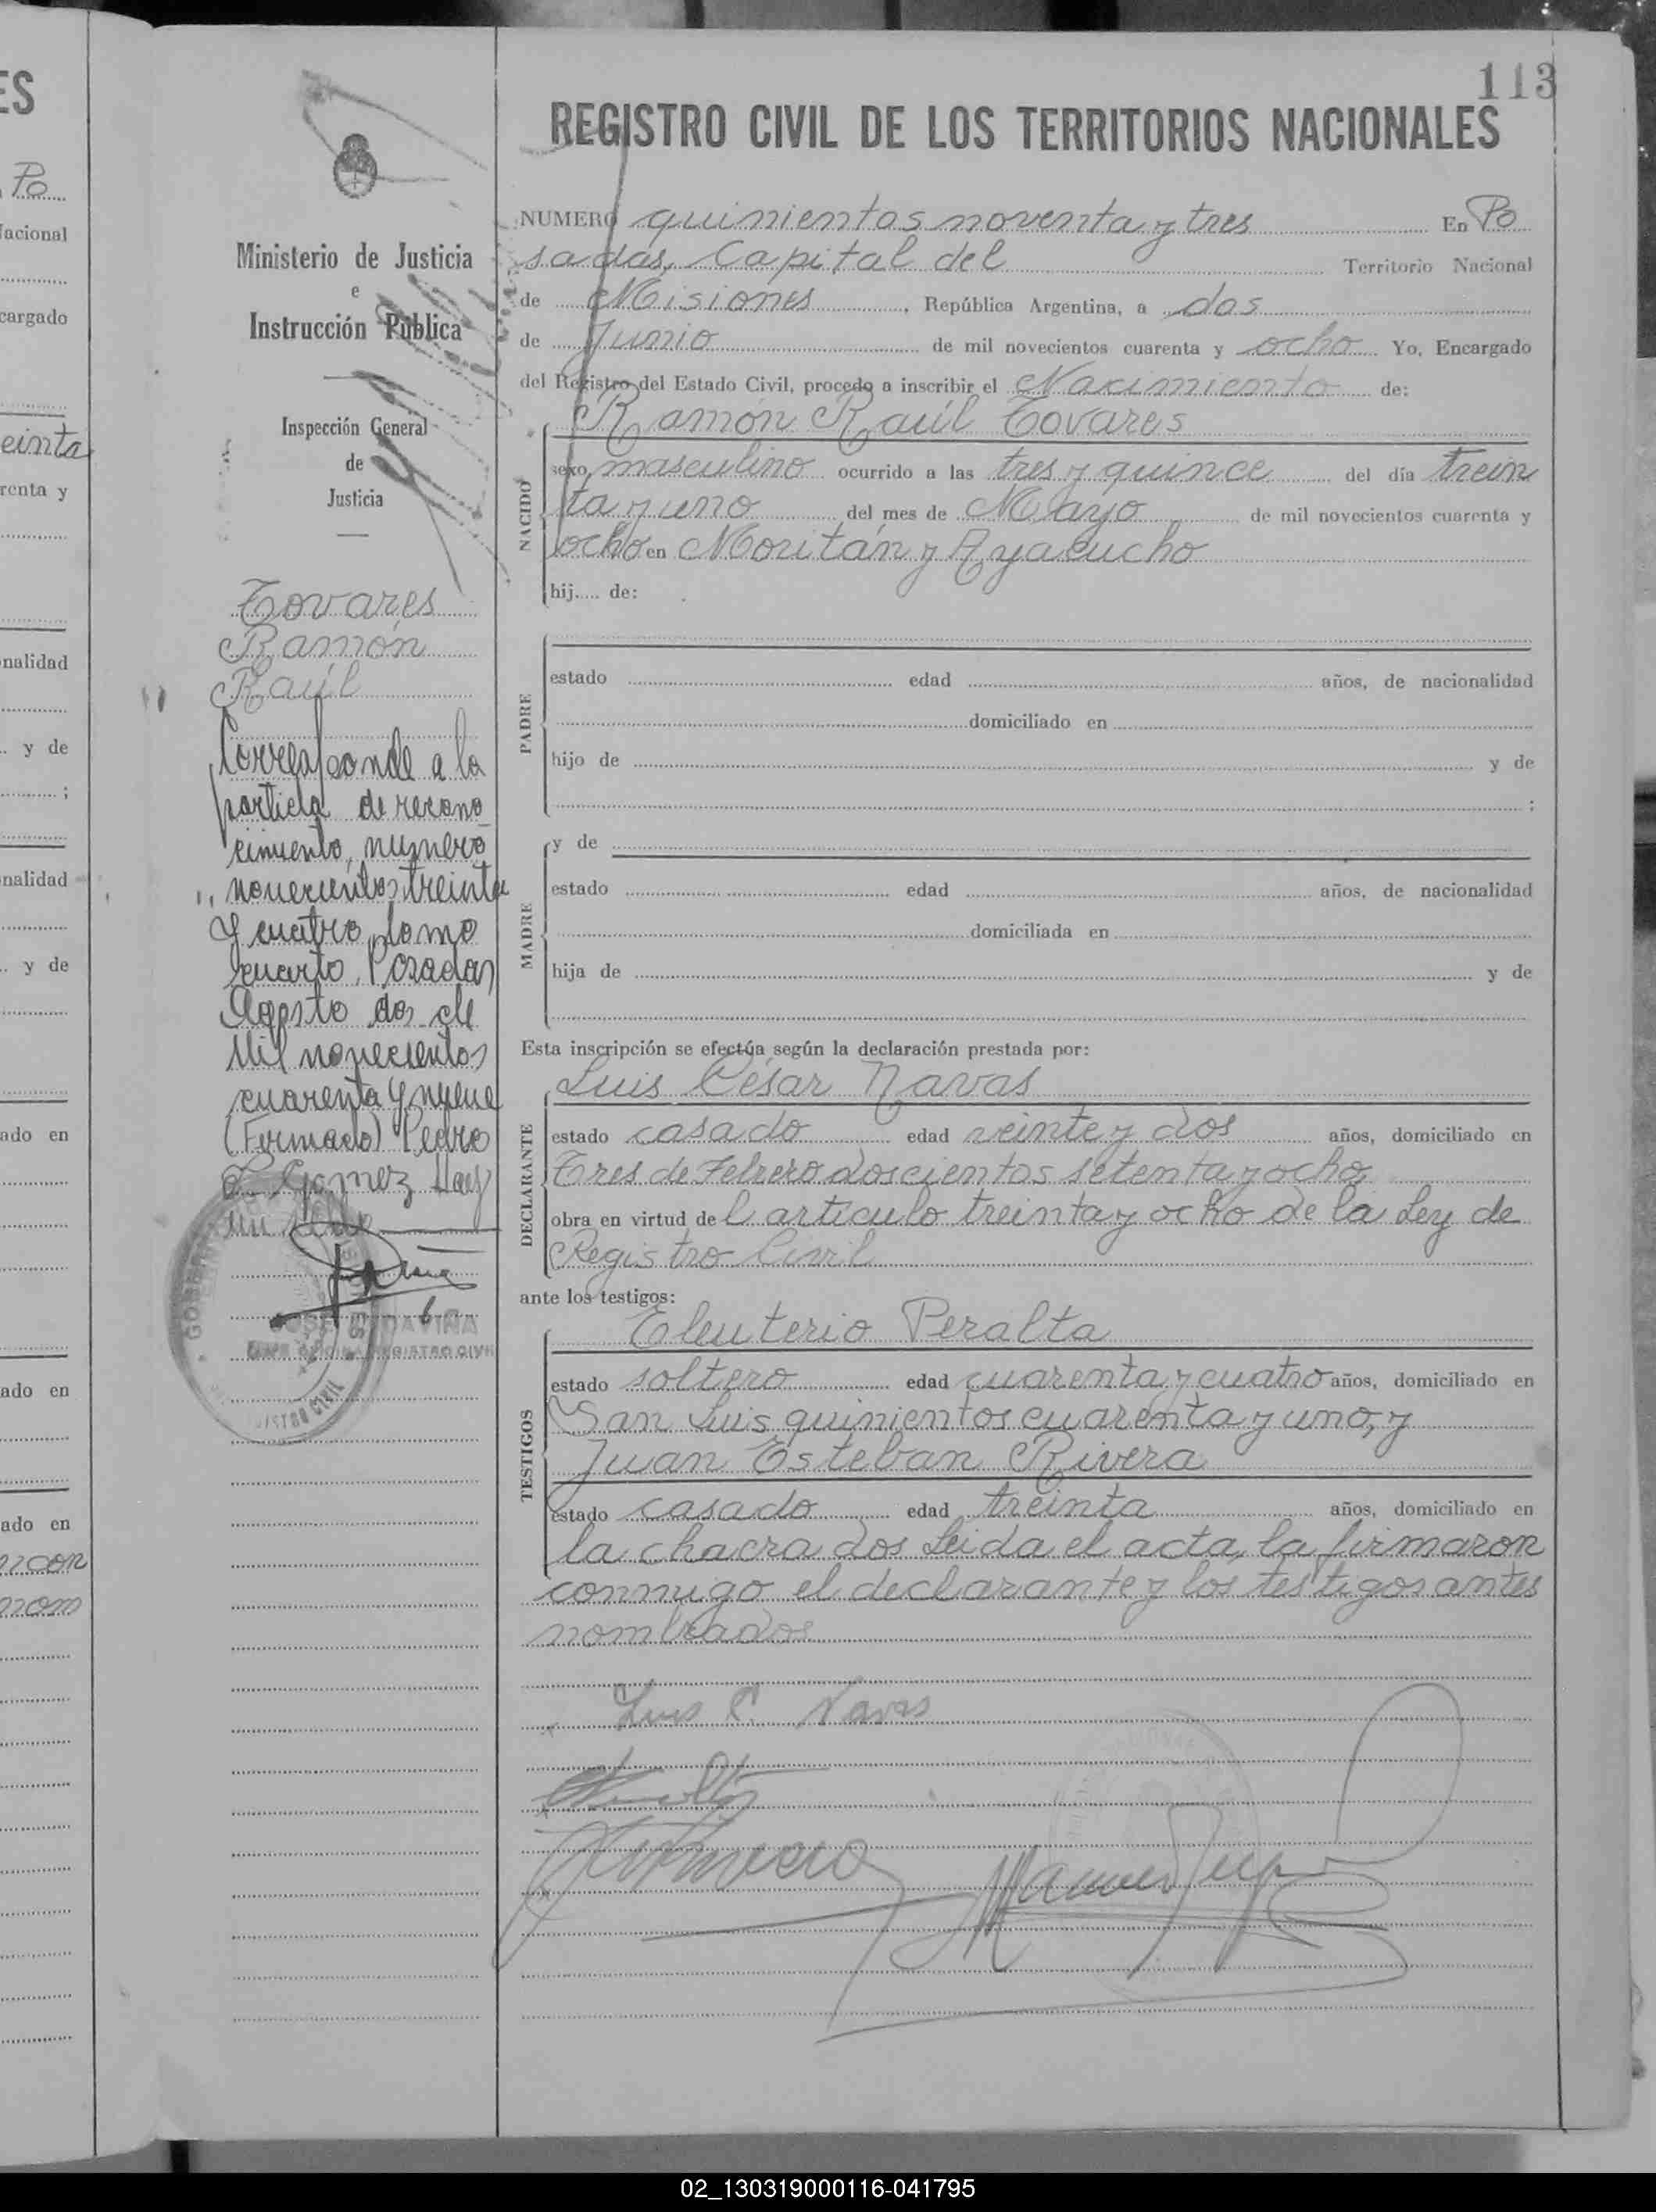 113
REGISTRO CIVIL DE LOS TERRITORIOS NACIONALES
NUMERO quinientos noventa y tres En Po
sadas, Capital del Territorio Nacional
de Misiones, República Argentina, a dos
de Junio de mil novecientos cuarenta y ocho Yo, Encargado
del Registro del Estado Civil, procedo a inscribir el Nacimiento de:
Ramón Raúl Tovares
NACIDO
sexo, masculino ocurrido a las tres y quince del día trein
ta y uno del mes de Mayo de mil novecientos cuarenta y
ocho en Moritán y Ayacucho
hij.... de:
PADRE
estado edad años, de nacionalidad
domiciliado en
hijo de y de
;
MADRE
y de
estado edad años, de nacionalidad
domiciliada en
hija de y de
Esta inscripción se efectúa según la declaración prestada por:
DECLARANTE
Luis César Navas
estado casado edad veinte y dos años, domiciliado en
Tres de Febrero doscientos setenta y ocho,
obra en virtud del artículo treinta y ocho de la Ley de
Registro Civil
ante los testigos:
TESTIGOS
Eleuterio Peralta
estado soltero edad cuarenta y cuatro años, domiciliado en
San Luis quinientos cuarenta y uno, y
Juan Esteban Rivera
estado casado edad treinta años, domiciliado en
la chacra dos Leida el acta, la firmaron
conmigo el declarante y los testigos antes
nombrados
Luis C. Navas
Ministerio de Justicia
e
Instrucción Pública
Inspección General
de
Justicia
Tovares
Ramón
Raúl
Corresponde a la
partida de recono
cimiento, numero
novecientos treinta
y cuatro, tomo
cuarto, Posadas
Agosto dos de
Mil novecientos
cuarenta y nueve
(Firmado) Pedro
L. Gomez Hay
un sello
ES
Po
Nacional
cargado
einta
renta y
nalidad
y de
;
nalidad
y de
ado en
ado en
ado en
con
nom
02_130319000116-041795